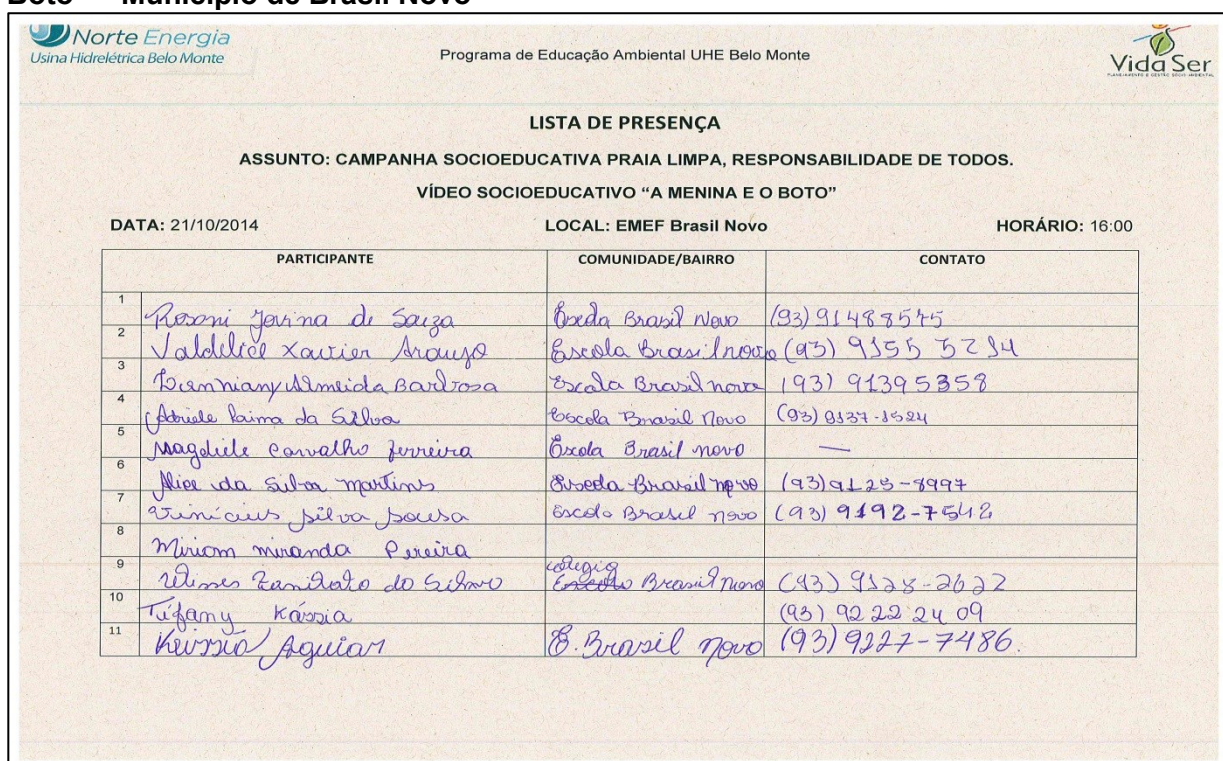 Boto" – Município de Brasil Novo
Norte Energia
Usina Hidrelétrica Belo Monte
Programa de Educação Ambiental UHE Belo Monte
Vida Ser
LISTA DE PRESENÇA
ASSUNTO: CAMPANHA SOCIOEDUCATIVA PRAIA LIMPA, RESPONSABILIDADE DE TODOS.
VÍDEO SOCIOEDUCATIVO “A MENINA E O BOTO”
DATA: 21/10/2014 LOCAL: EMEF Brasil Novo HORÁRIO: 16:00
PARTICIPANTE COMUNIDADE/BAIRRO CONTATO
1 Rosani Jovina de Brasil Novo (93) 91488575
2 Xavier Araujo Escola Brasil novo (93) 9155 5214
3 Almeida Barbosa Escola Brasil novo (93) 91395358
4 da Silva Escola Brasil Novo (93) 9137-1524
5 Carvalho ferreira Escola Brasil novo —
6 Alice da Silva martins Brasil novo (93) 9125-8997
7 Vinicius Silva Sousa Escola Brasil novo (93) 9192-7542
8 miranda Pereira
9 colegio Brasil Novo (93) 9128-2622
10 Tífany Kássia (93) 9222 24 09
11 Aguiar E. Brasil novo (93) 9227-7486.